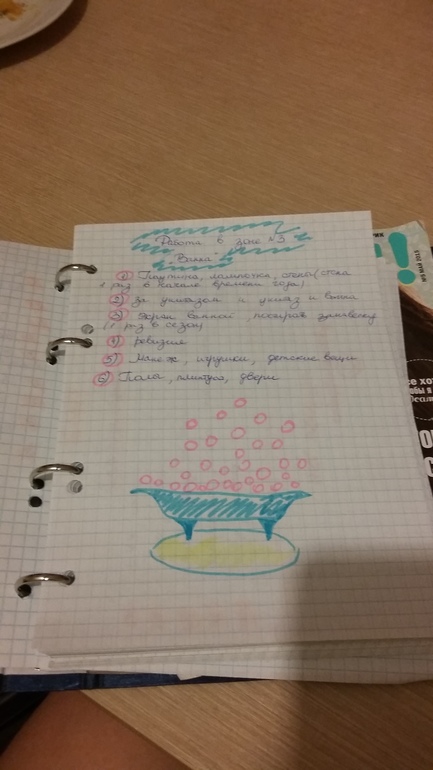 Работа в зоне №3
"Ванна"
1) Паутина, лампочка, стены (стена
1 раз в начале времени года)
2) за унитазом и унитаз и
3) Экран ванной, постирать занавеску
(1 раз в сезон)
4) ревизия
5) Манеж, игрушки, детские вещи
6) Полы, плинтуса, двери
!
№5 МАЙ 2013